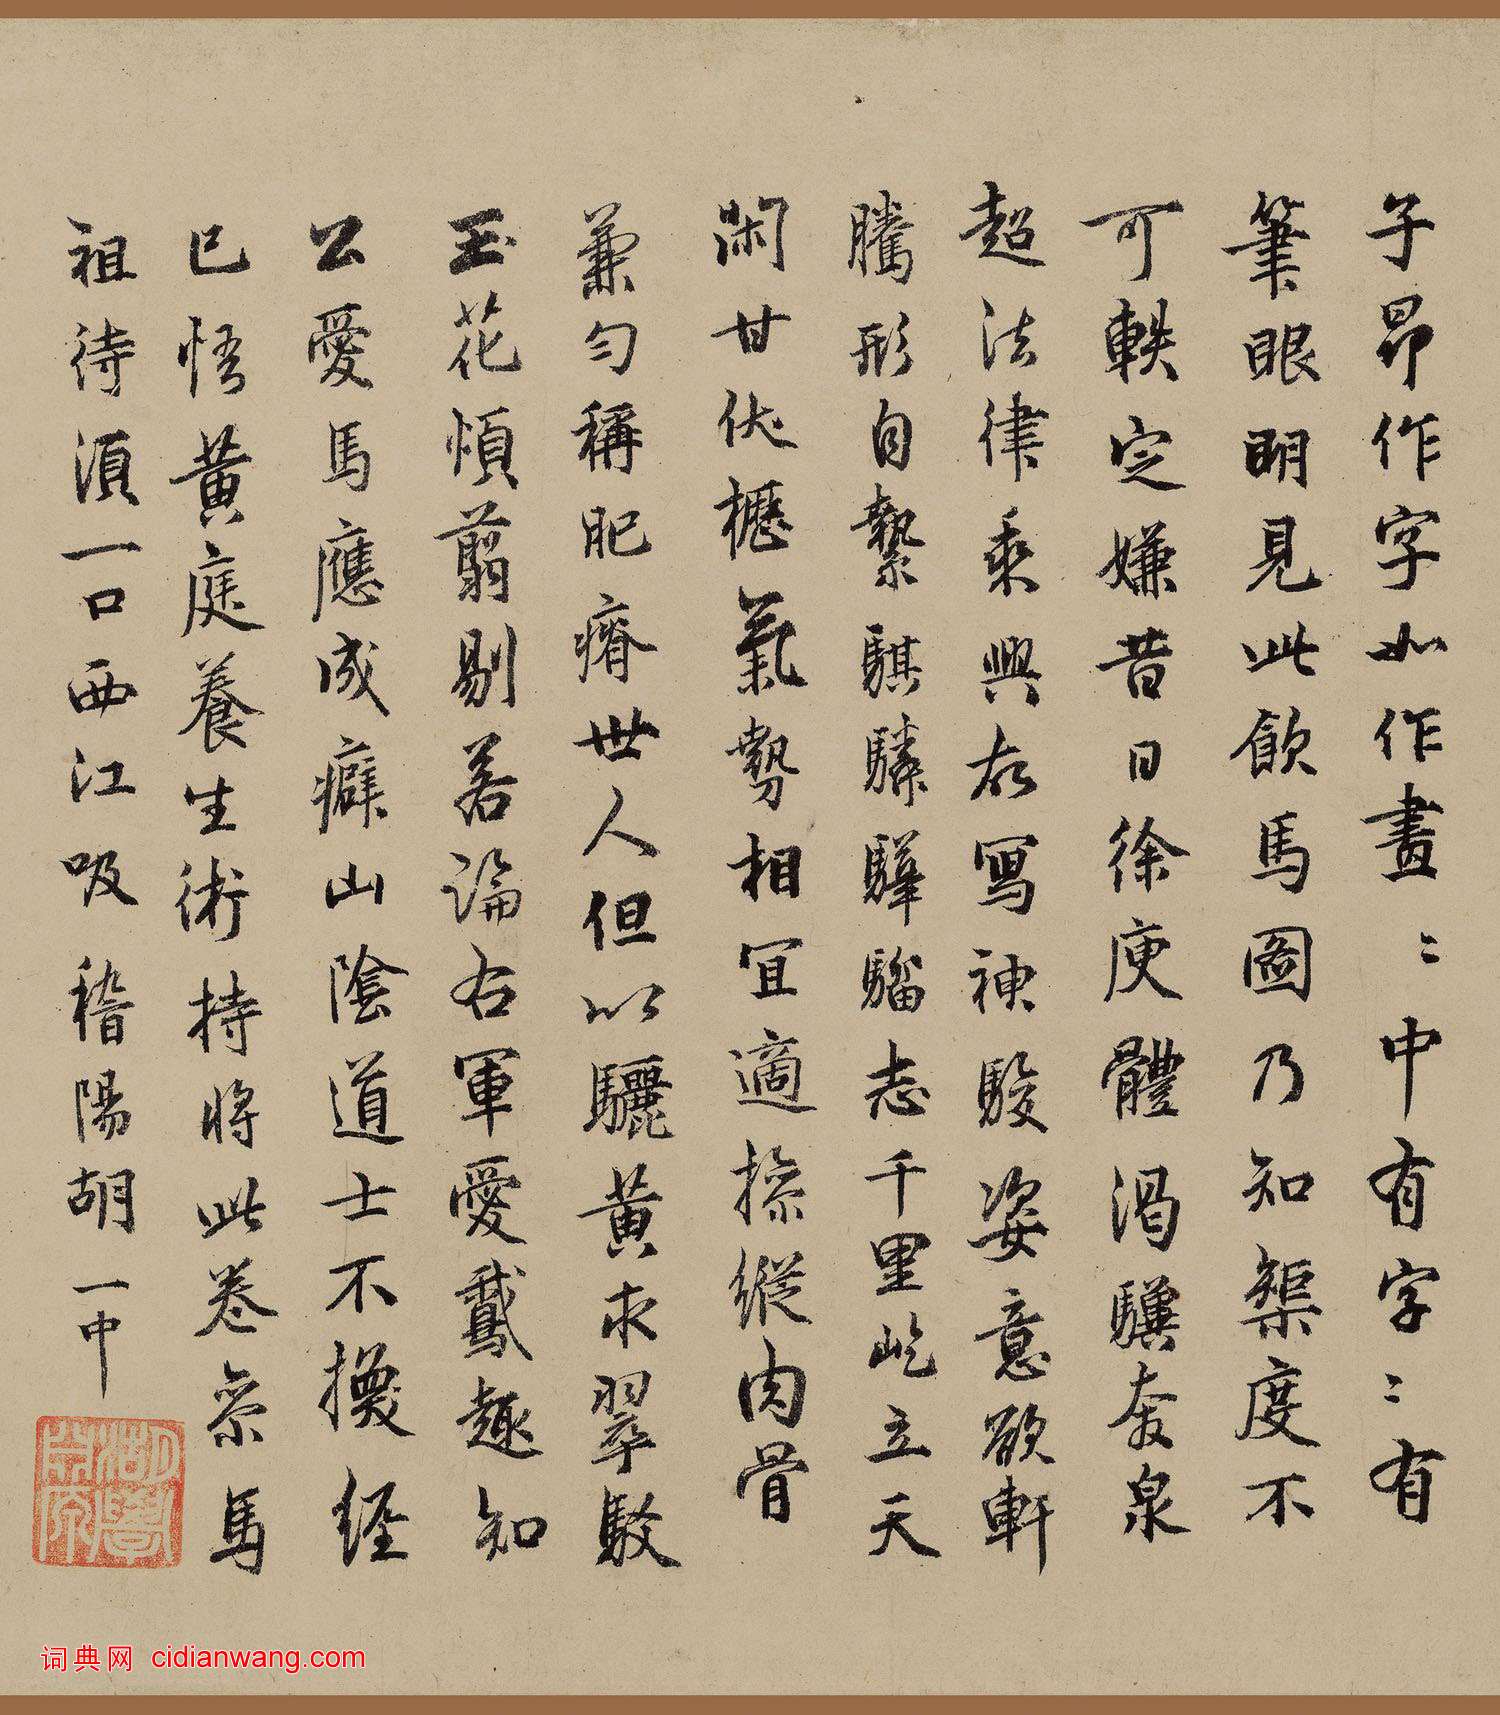 子昂作字如作畫〻中有字〻有
筆眼明見此飲馬圖乃知榘度不
可軼定嫌昔日徐庾體渴驥奔泉
超法律乘興右寫神駿姿意欲軒
騰形自縶騏驎驊騮志千里屹立天
閑甘伏櫪氣勢相宜適操縱肉骨
兼勻稱肥瘠世人但以驪黃求翠駁
玉花煩翦剔若論右軍愛鵞趣知
公愛馬應成癖山陰道士不換經
已悟黃庭養生術持將此卷叅馬
祖待須一口西江吸嵇陽胡一中
词典网 cidianwang.com